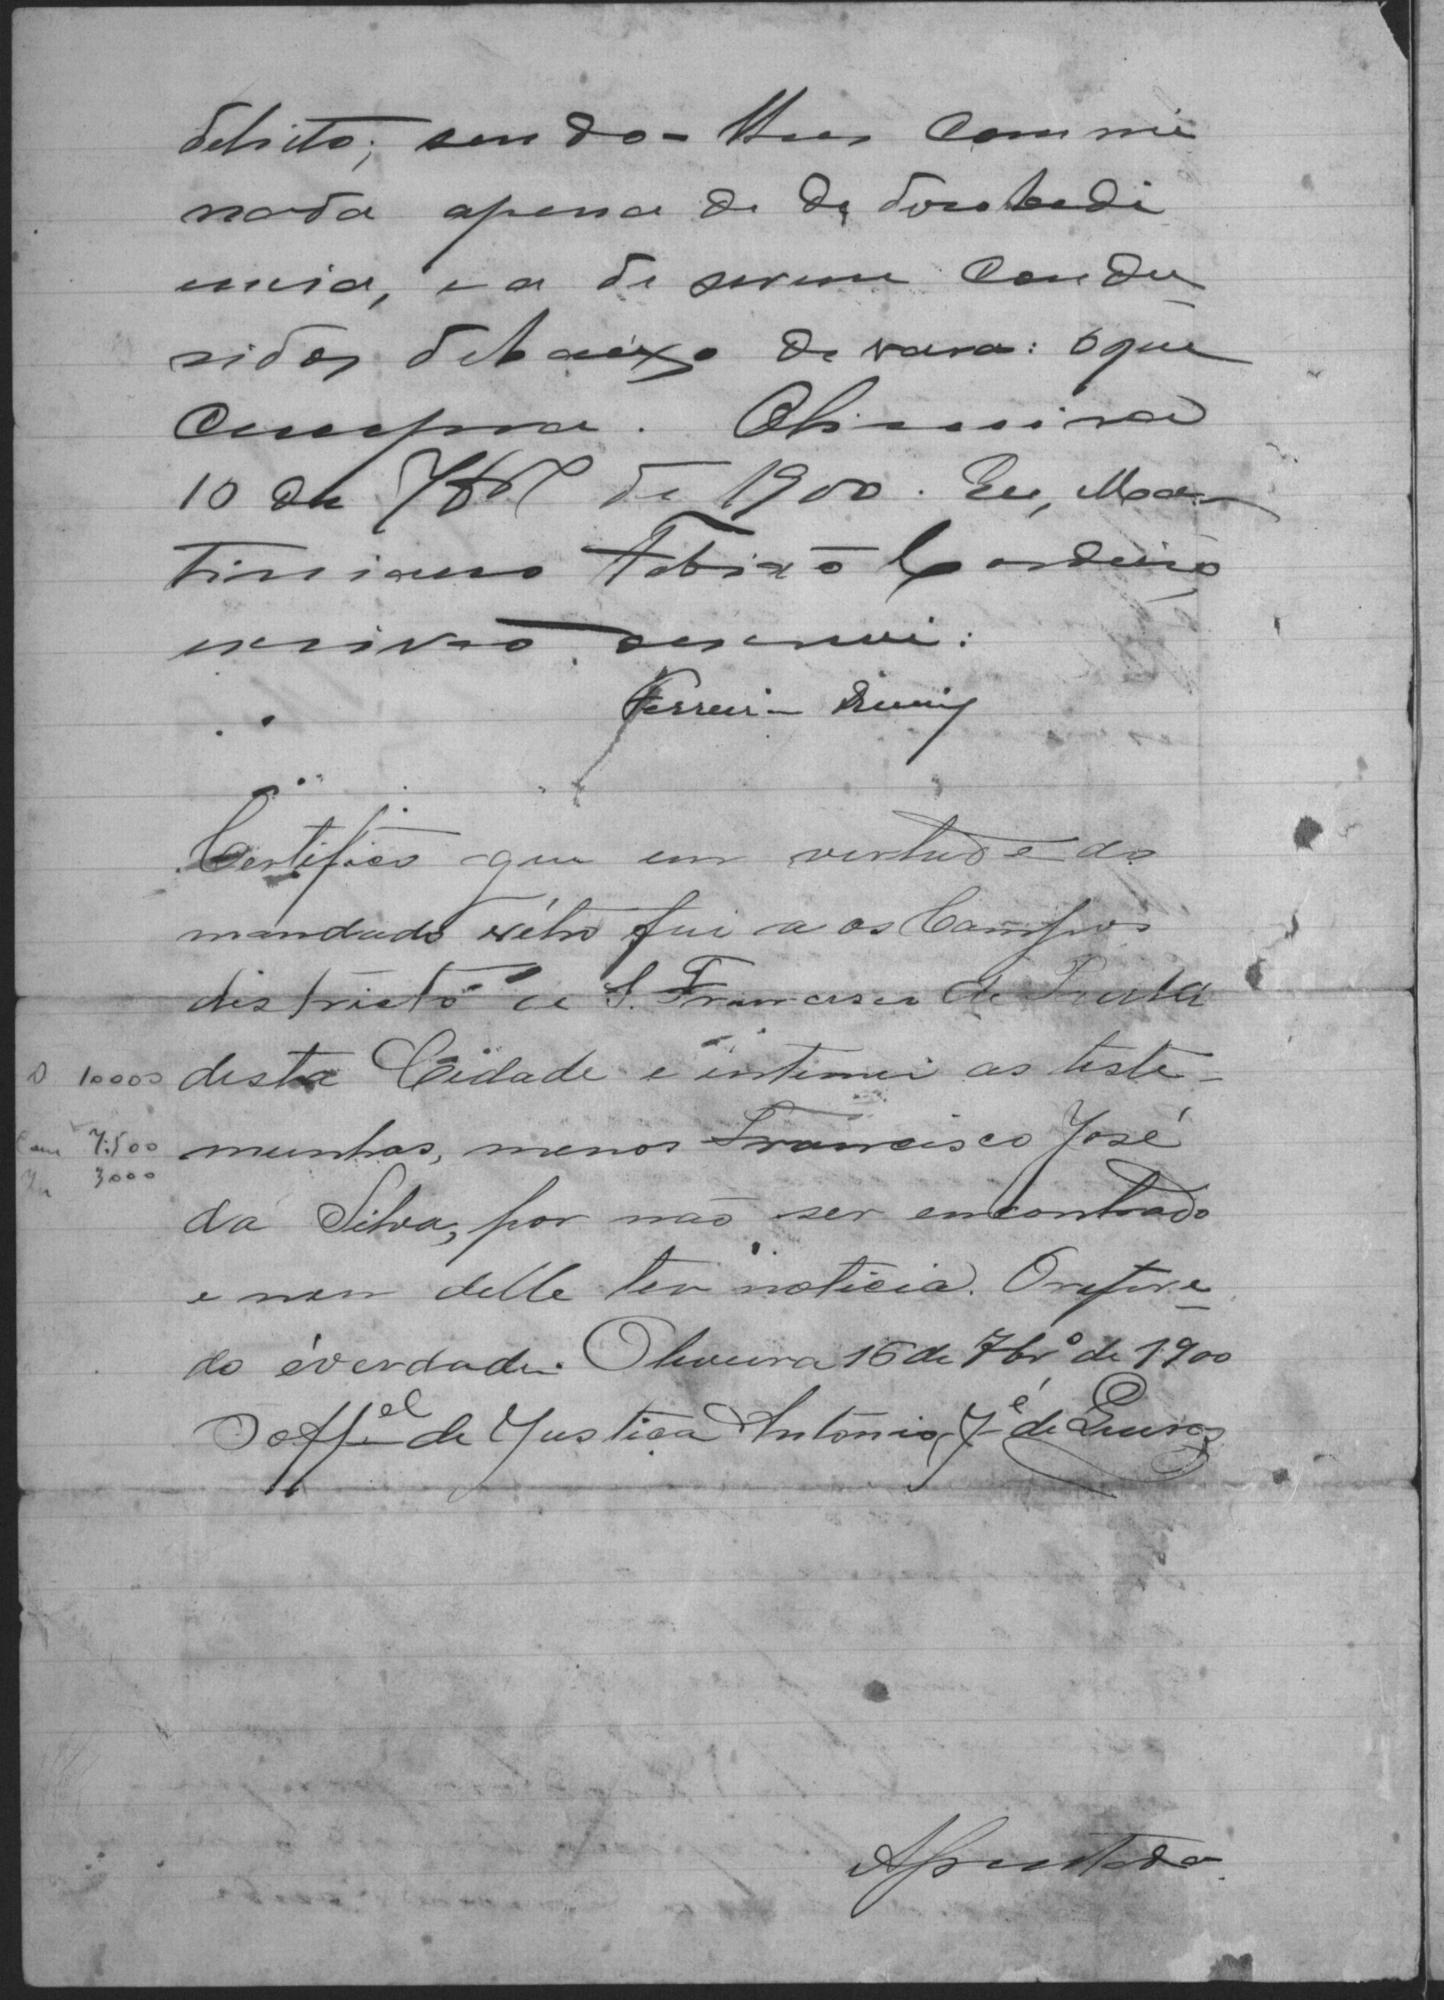 delicto; sendo-lhes commi
nada apena de de desobedi
encia, e a de serem condu-
sidos debaixo de vara: o que
cumpra. Oliveira
10 de 7br de 1900. Eu, Mar-
timiano Fabião Cordeiro,
escrivão, oescrevi:
Ferreira Diniz
Certifico que em vertude do
mandado rétro fui a os Campos
districto de S. Francisco de Paula
desta Cidade e intimei as teste-
D 10000
munhas, menos Francisco José
7:500
3000
da Silva, por não ser encontrado
e nem delle ter noticia. O refere-
do éverdade. Oliveira 16 de 7brº de 1900
O offel de Justiça Antonio Jé de
Apresentada